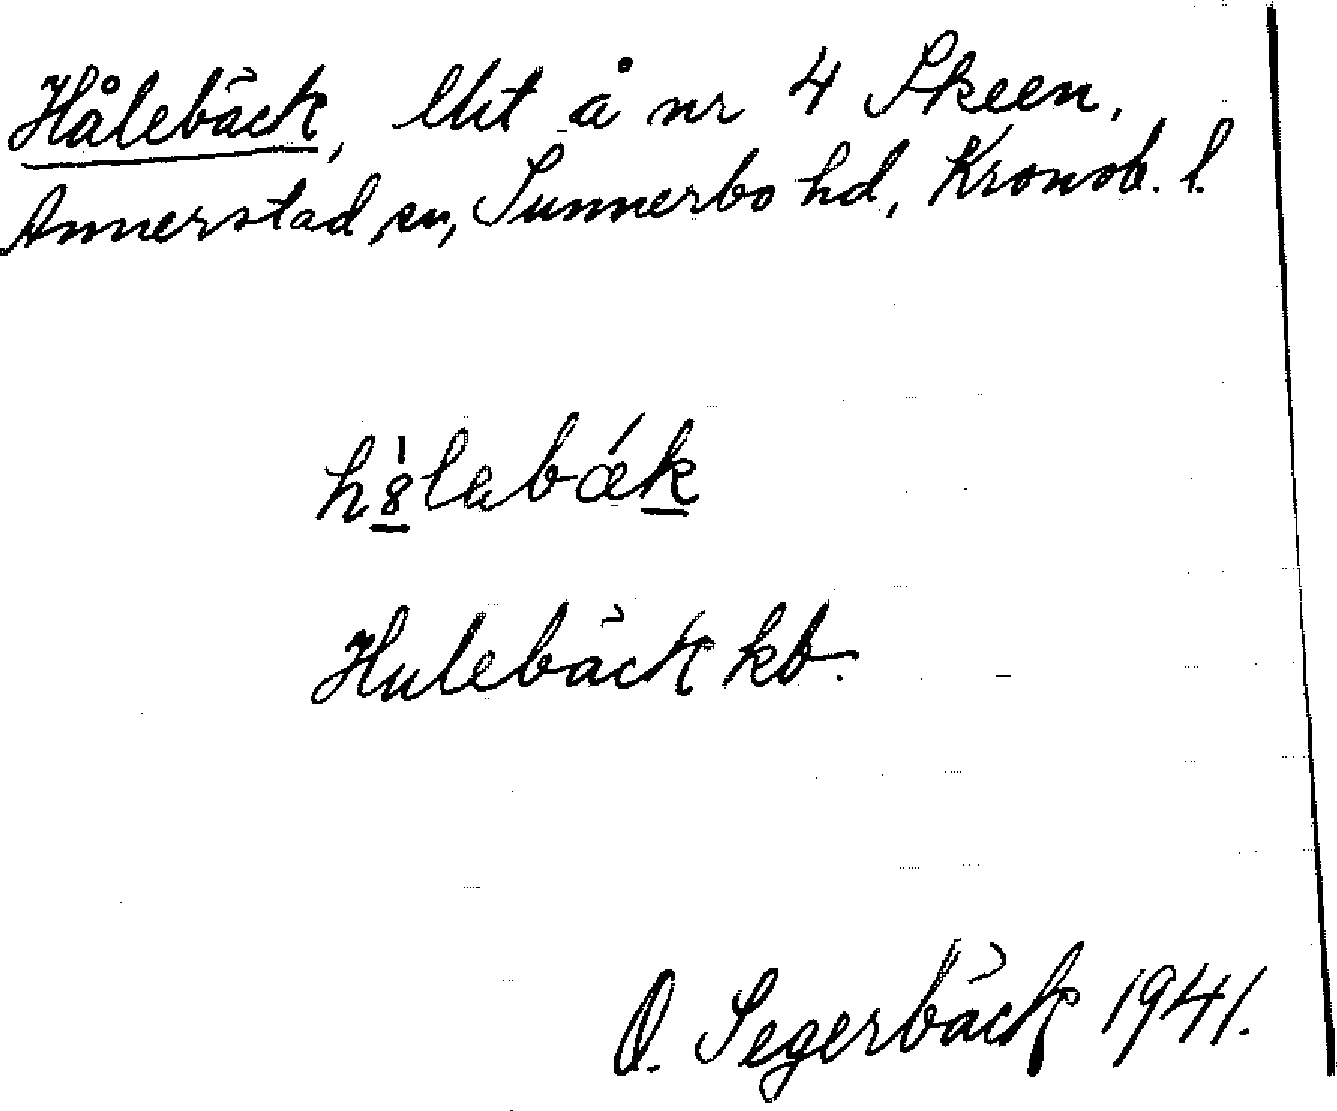 Hålebäck, lht å nr 4 Skeen,
Annerstad sn, Sunnerbo hd, Kronob. l.
h8̀labǽk
Hulebäck kb.
O. Segerbäck 1941.